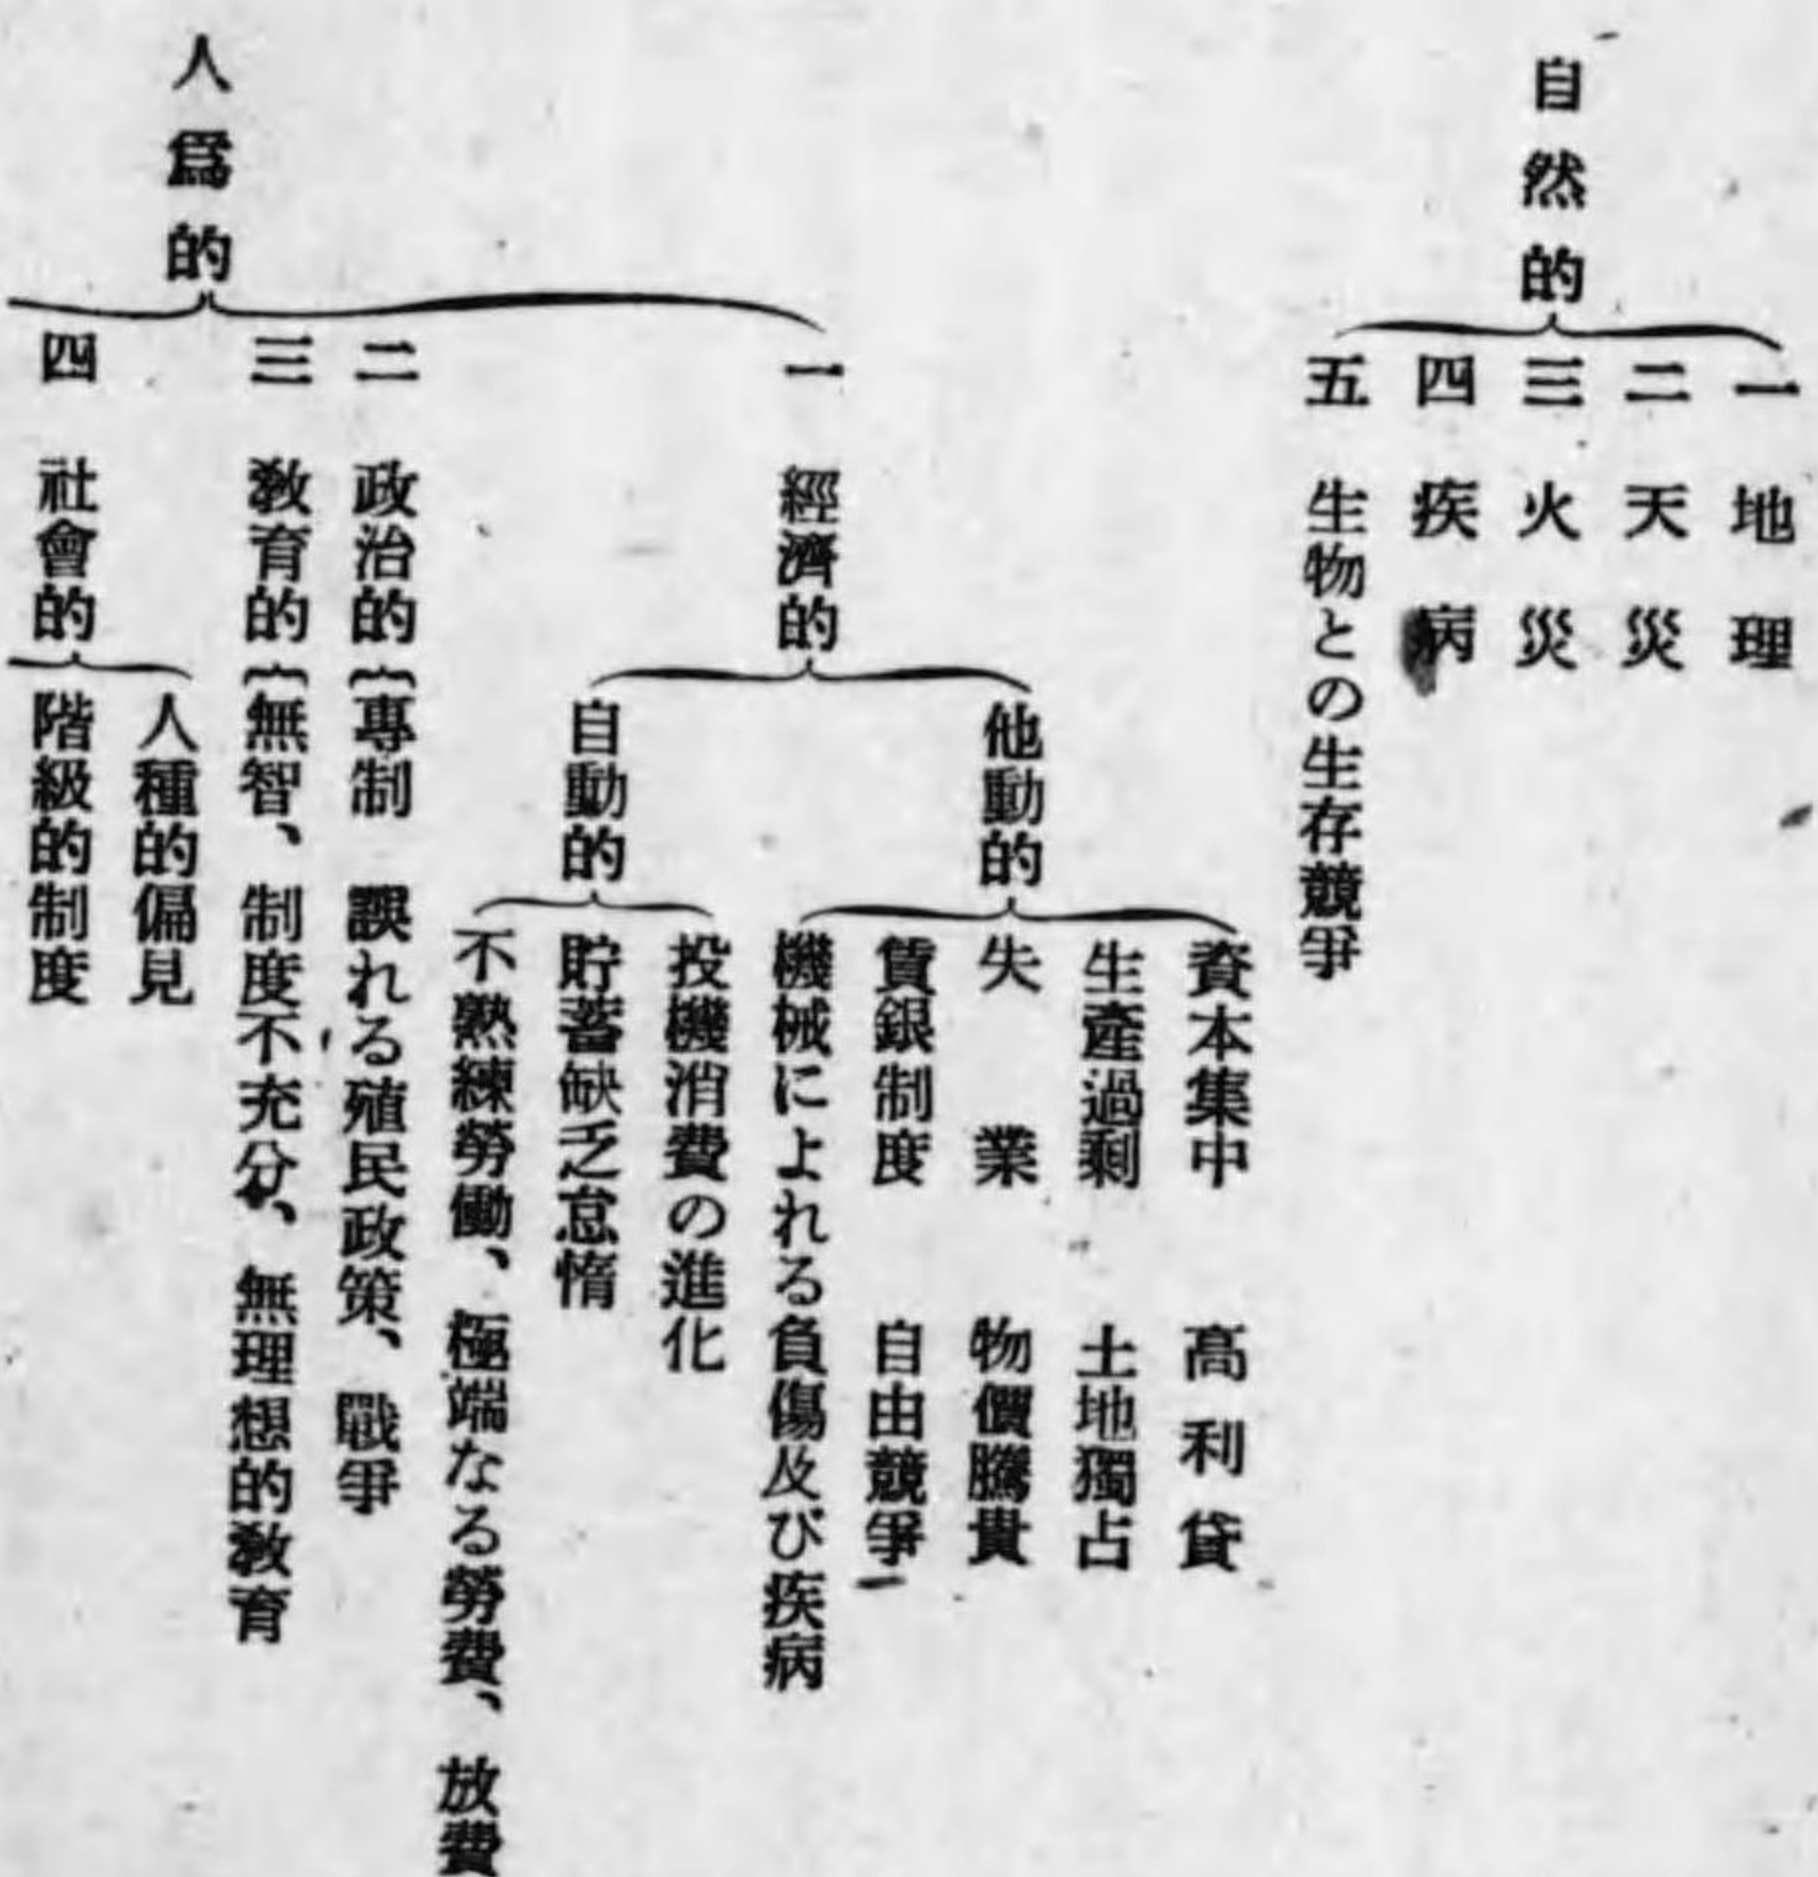 自然的
一 地理
二 天災
三 火災
四 疾病
五 生物との生存競爭
人爲的
一 經濟的
他動的
資本集中 高利貸
生產過剩 土地獨占
失業 物價騰貴
賃銀制度 自由競爭
機械によれる負傷及び疾病
自動的
投機消費の進化
貯蓄缺乏怠惰
不熟練勞働、極端なる勞費、放費
二 政治的{專制 誤れる殖民政策、戰爭
三 敎育的{無智、制度不充分、無理想的敎育
四 社會的
人種的偏見
階級的制度